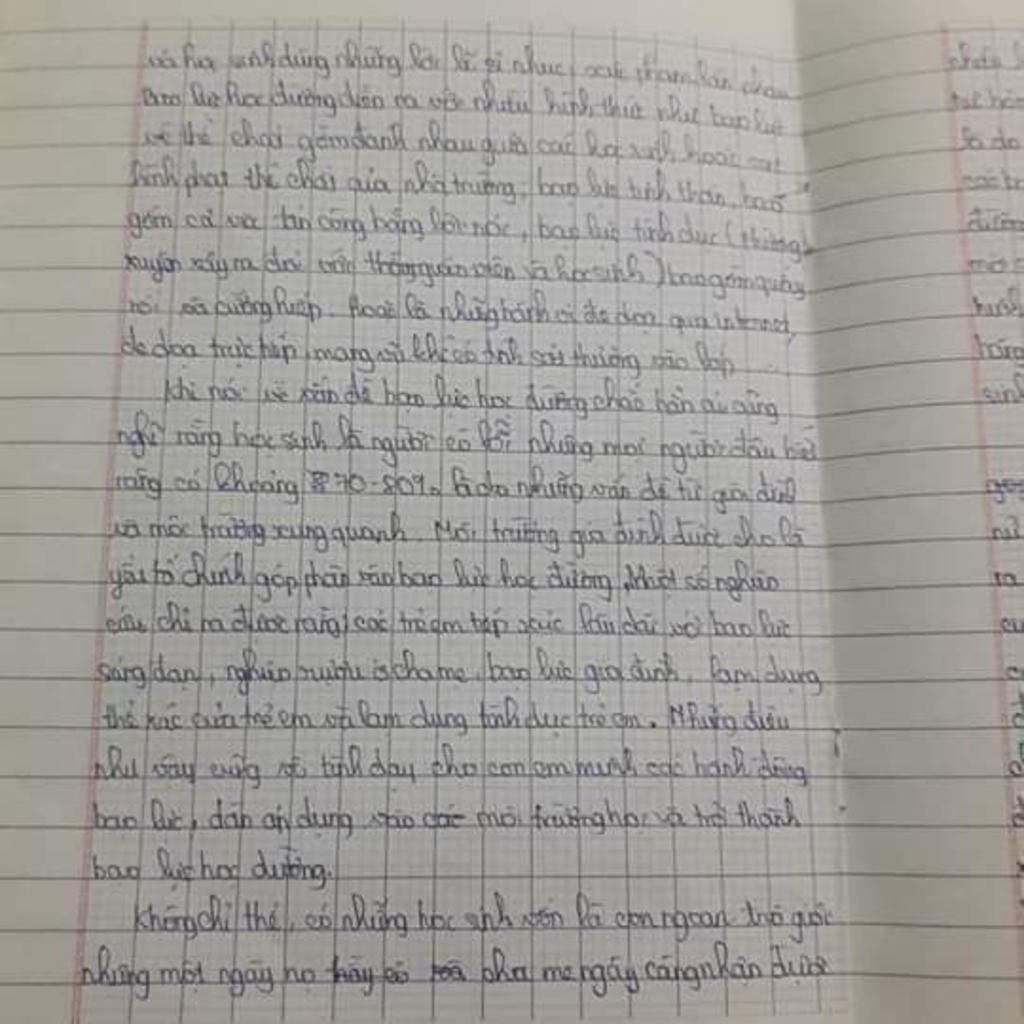 và học sinh dùng những lời lẽ sỉ nhục,
bạo lực học đường diễn ra với nhiều hình thức như bạo lực
về thể chất gồm đánh nhau giữa các học sinh hoặc
hình phạt thể chất của nhà trường, bạo lực tinh thần, bao
gồm cả việc tấn công bằng lời nói, bạo lực tình dục (thường
xuyên xảy ra đối với và học sinh) bao gồm quấy
rối và cưỡng hiếp. Hoặc là những hành vi đe dọa qua internet,
đe dọa trực tiếp, mang vũ khí có tính sát thương vào lớp
Khi nói về vấn đề bạo lực học đường chắc hẳn ai cũng
nghĩ rằng học sinh là người có lỗi nhưng mọi người đâu biết
rằng có khoảng 70-80% là do những vấn đề từ gia đình
và môi trường xung quanh. Môi trường gia đình được cho là
yếu tố chính góp phần vào bạo lực học đường. Một số nghiên
cứu chỉ ra được rằng, các trẻ em tiếp xúc lâu dài với bạo lực
súng đạn, nghiện rượu ở cha mẹ, bạo lực gia đình, lạm dụng
thể xác của trẻ em và lạm dụng tình dục trẻ em. Những điều
như vậy cũng vô tình dạy cho con em mình các hành động
bạo lực, dần áp dụng vào các môi trường học và trở thành
bạo lực học đường.
Không chỉ thế, có những học sinh vốn là con ngoan trò giỏi
nhưng một ngày nọ cha mẹ ngày càng nhận được